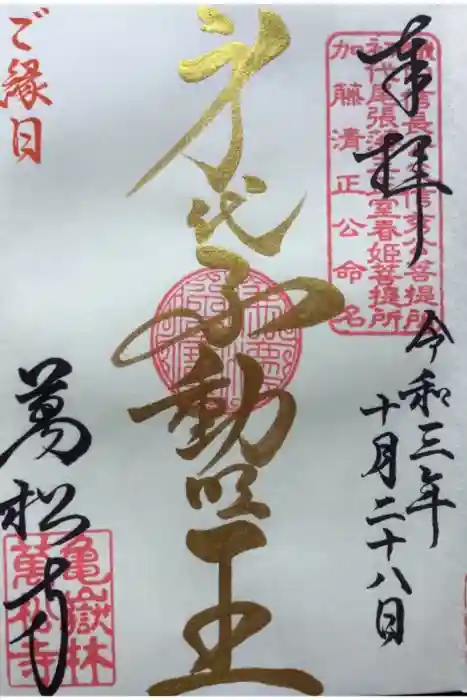 奉拝
信長 信秀公菩提所
初代尾張藩主正室春姫菩提所
加藤清正公命名
令和三年
十月二十八日
身代不動明王
ご縁日
萬松寺
亀嶽林
萬松寺